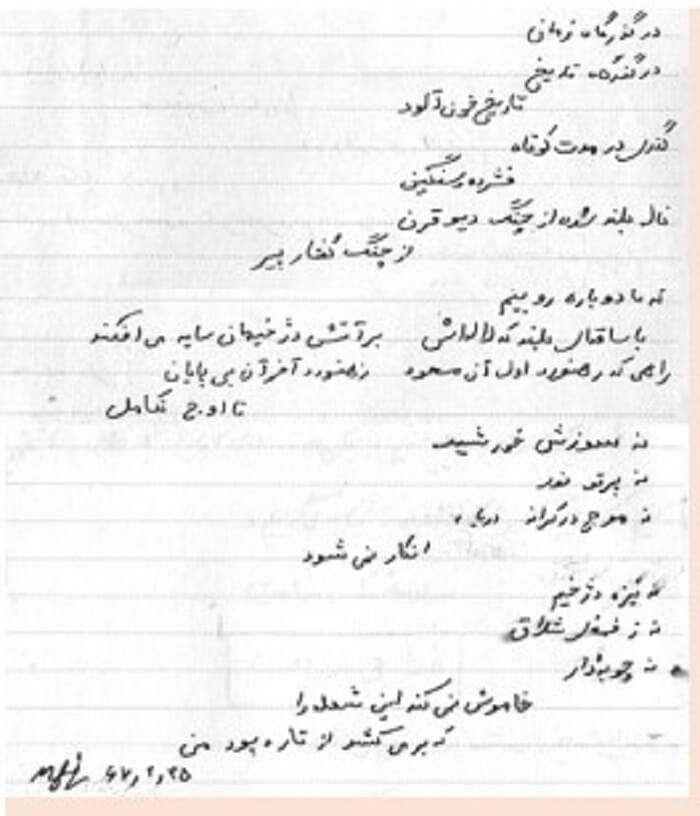 در گذرگاه زمانی
در گذرگاه تاریخ
تاریخ خون آلود
گذری در مدت کوتاه
فشرده سنگین
ناله بلند شده از چنگ دیو قرن
از چنگ کفتار پیر
که ما دوباره روییم
با ساقه‌ای بلند که لاله‌اش بر آتش دژخیمان سایه می‌افکند
راهی که رهنورد اول آن مسعود رهنورد آخر آن بی پایان
تا اوج تکامل
نه سوزش خورشید
نه پرتو نور
نه موج در کرانه دریا
انکار نمی شود
نه دژخیم
نه زخمهای شلاق
نه چوبه دار
خاموش نمی کند این شعله را
که بر می کشد از تار و پود من
۶۷٫۲٫۲۵